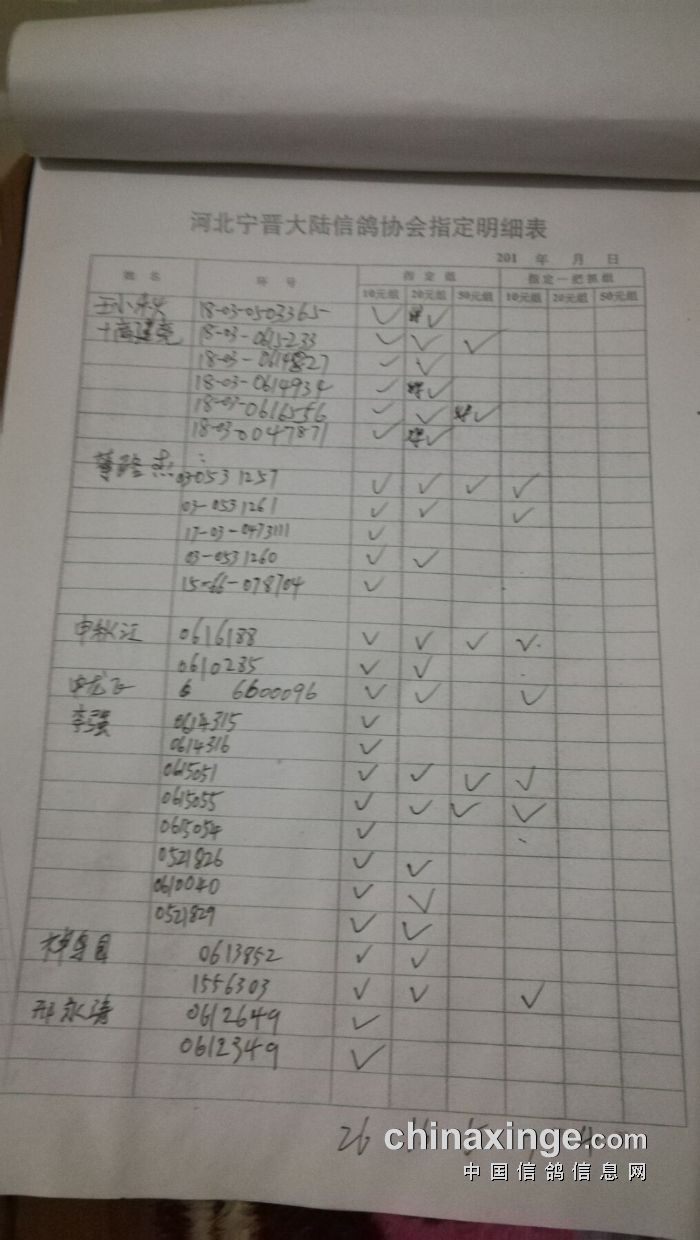 河北宁晋大陆信鸽协会指定明细表
201 年 月 日
姓名 环号 指定组 指定一把抓组
10元组 20元组 50元组 10元组 20元组 50元组
18-03-0503365 ✓ ✓
18-03-0615233 ✓ ✓ ✓
18-03-0614827 ✓ ✓
18-03-0614934 ✓ ✓
18-03-0616556 ✓ ✓ ✓
18-03-0047871 ✓ ✓
03-0531257 ✓ ✓ ✓ ✓
03-0531261 ✓ ✓ ✓
17-03-0473111 ✓
03-0531260 ✓ ✓
15-66-078704 ✓
申秋江 0616188 ✓ ✓ ✓ ✓
0610235 ✓ ✓
申龙飞 6600096 ✓ ✓ ✓
李强 0614315 ✓
0614316 ✓
0615051 ✓ ✓ ✓ ✓
0615055 ✓ ✓ ✓ ✓
0615054 ✓
0521826 ✓ ✓
0610040 ✓ ✓
0521829 ✓ ✓
0613852 ✓ ✓
1556303 ✓ ✓ ✓
0612649 ✓
0612349 ✓
26
chinaxinge.com
中国信鸽信息网